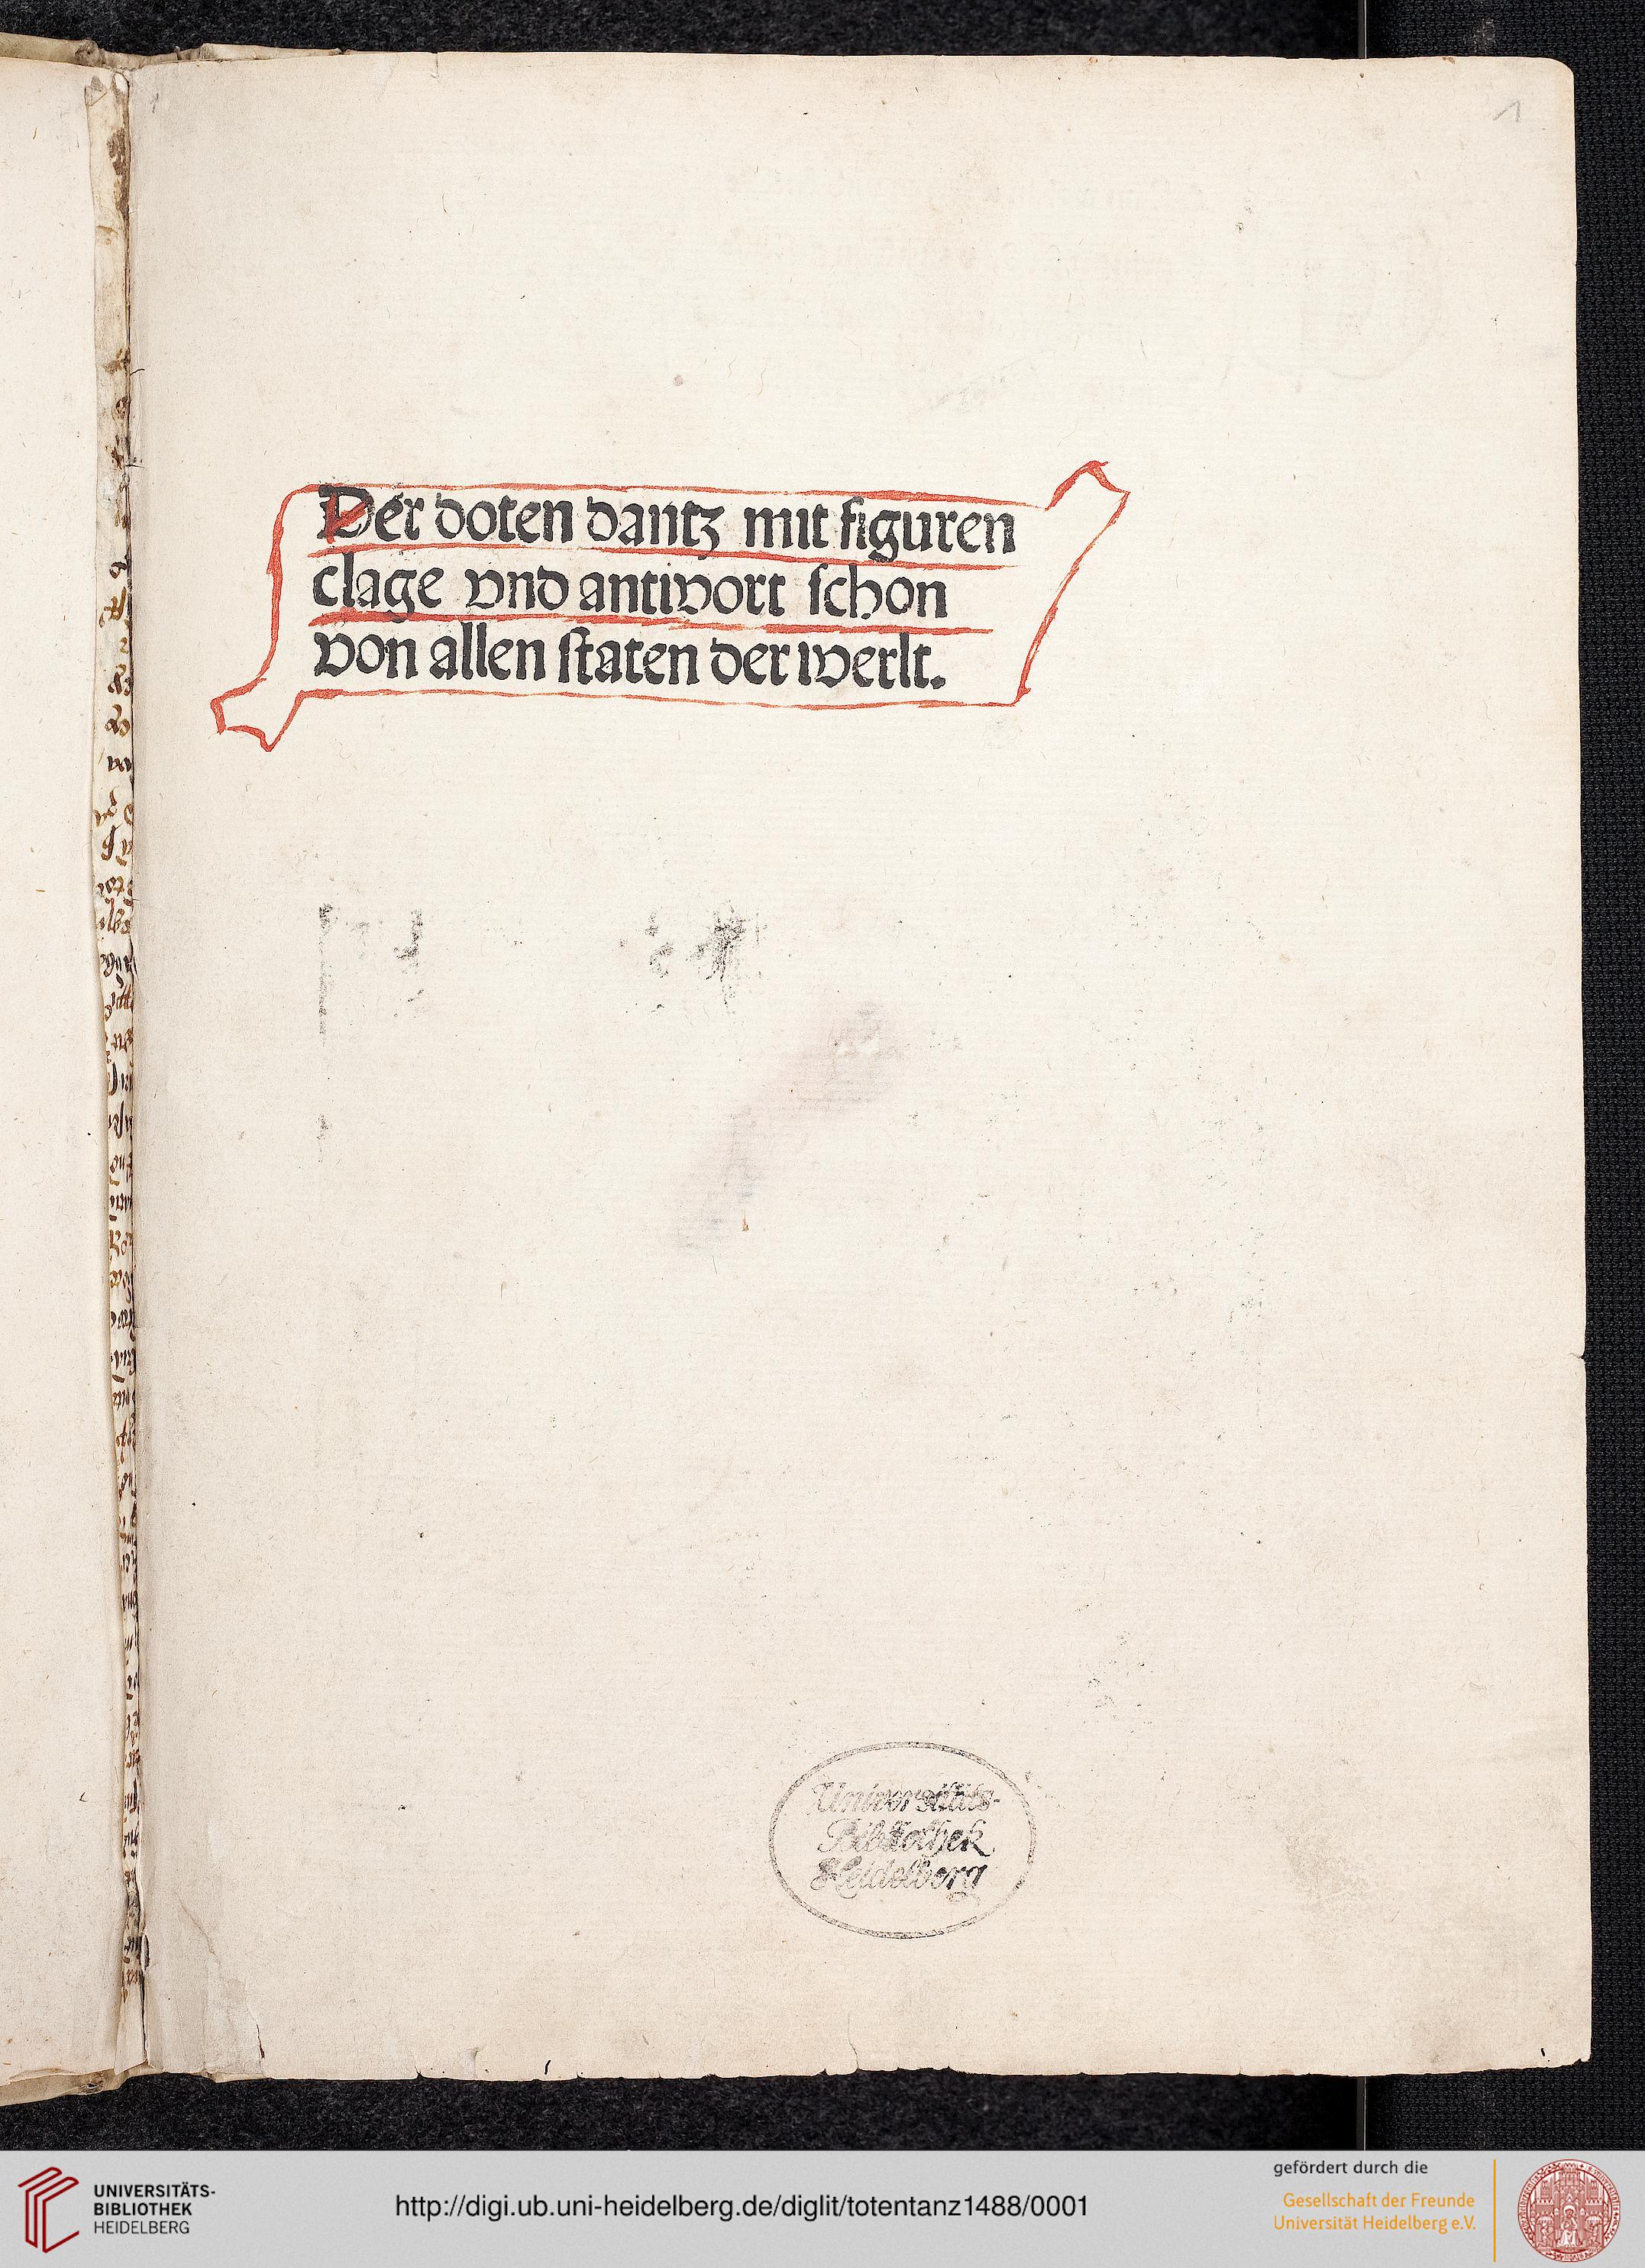 1
Der doten dantz mit figuren
clage vnd antwort schon
von allen staten der werlt.
Universitäts-
Bibliothek
Heidelberg
UNIVERSITÄTS-
BIBLIOTHEK
HEIDELBERG
http://digi.ub.uni-heidelberg.de/diglit/totentanz1488/0001
gefördert durch die
Gesellschaft der Freunde
Universität Heidelberg e.V.